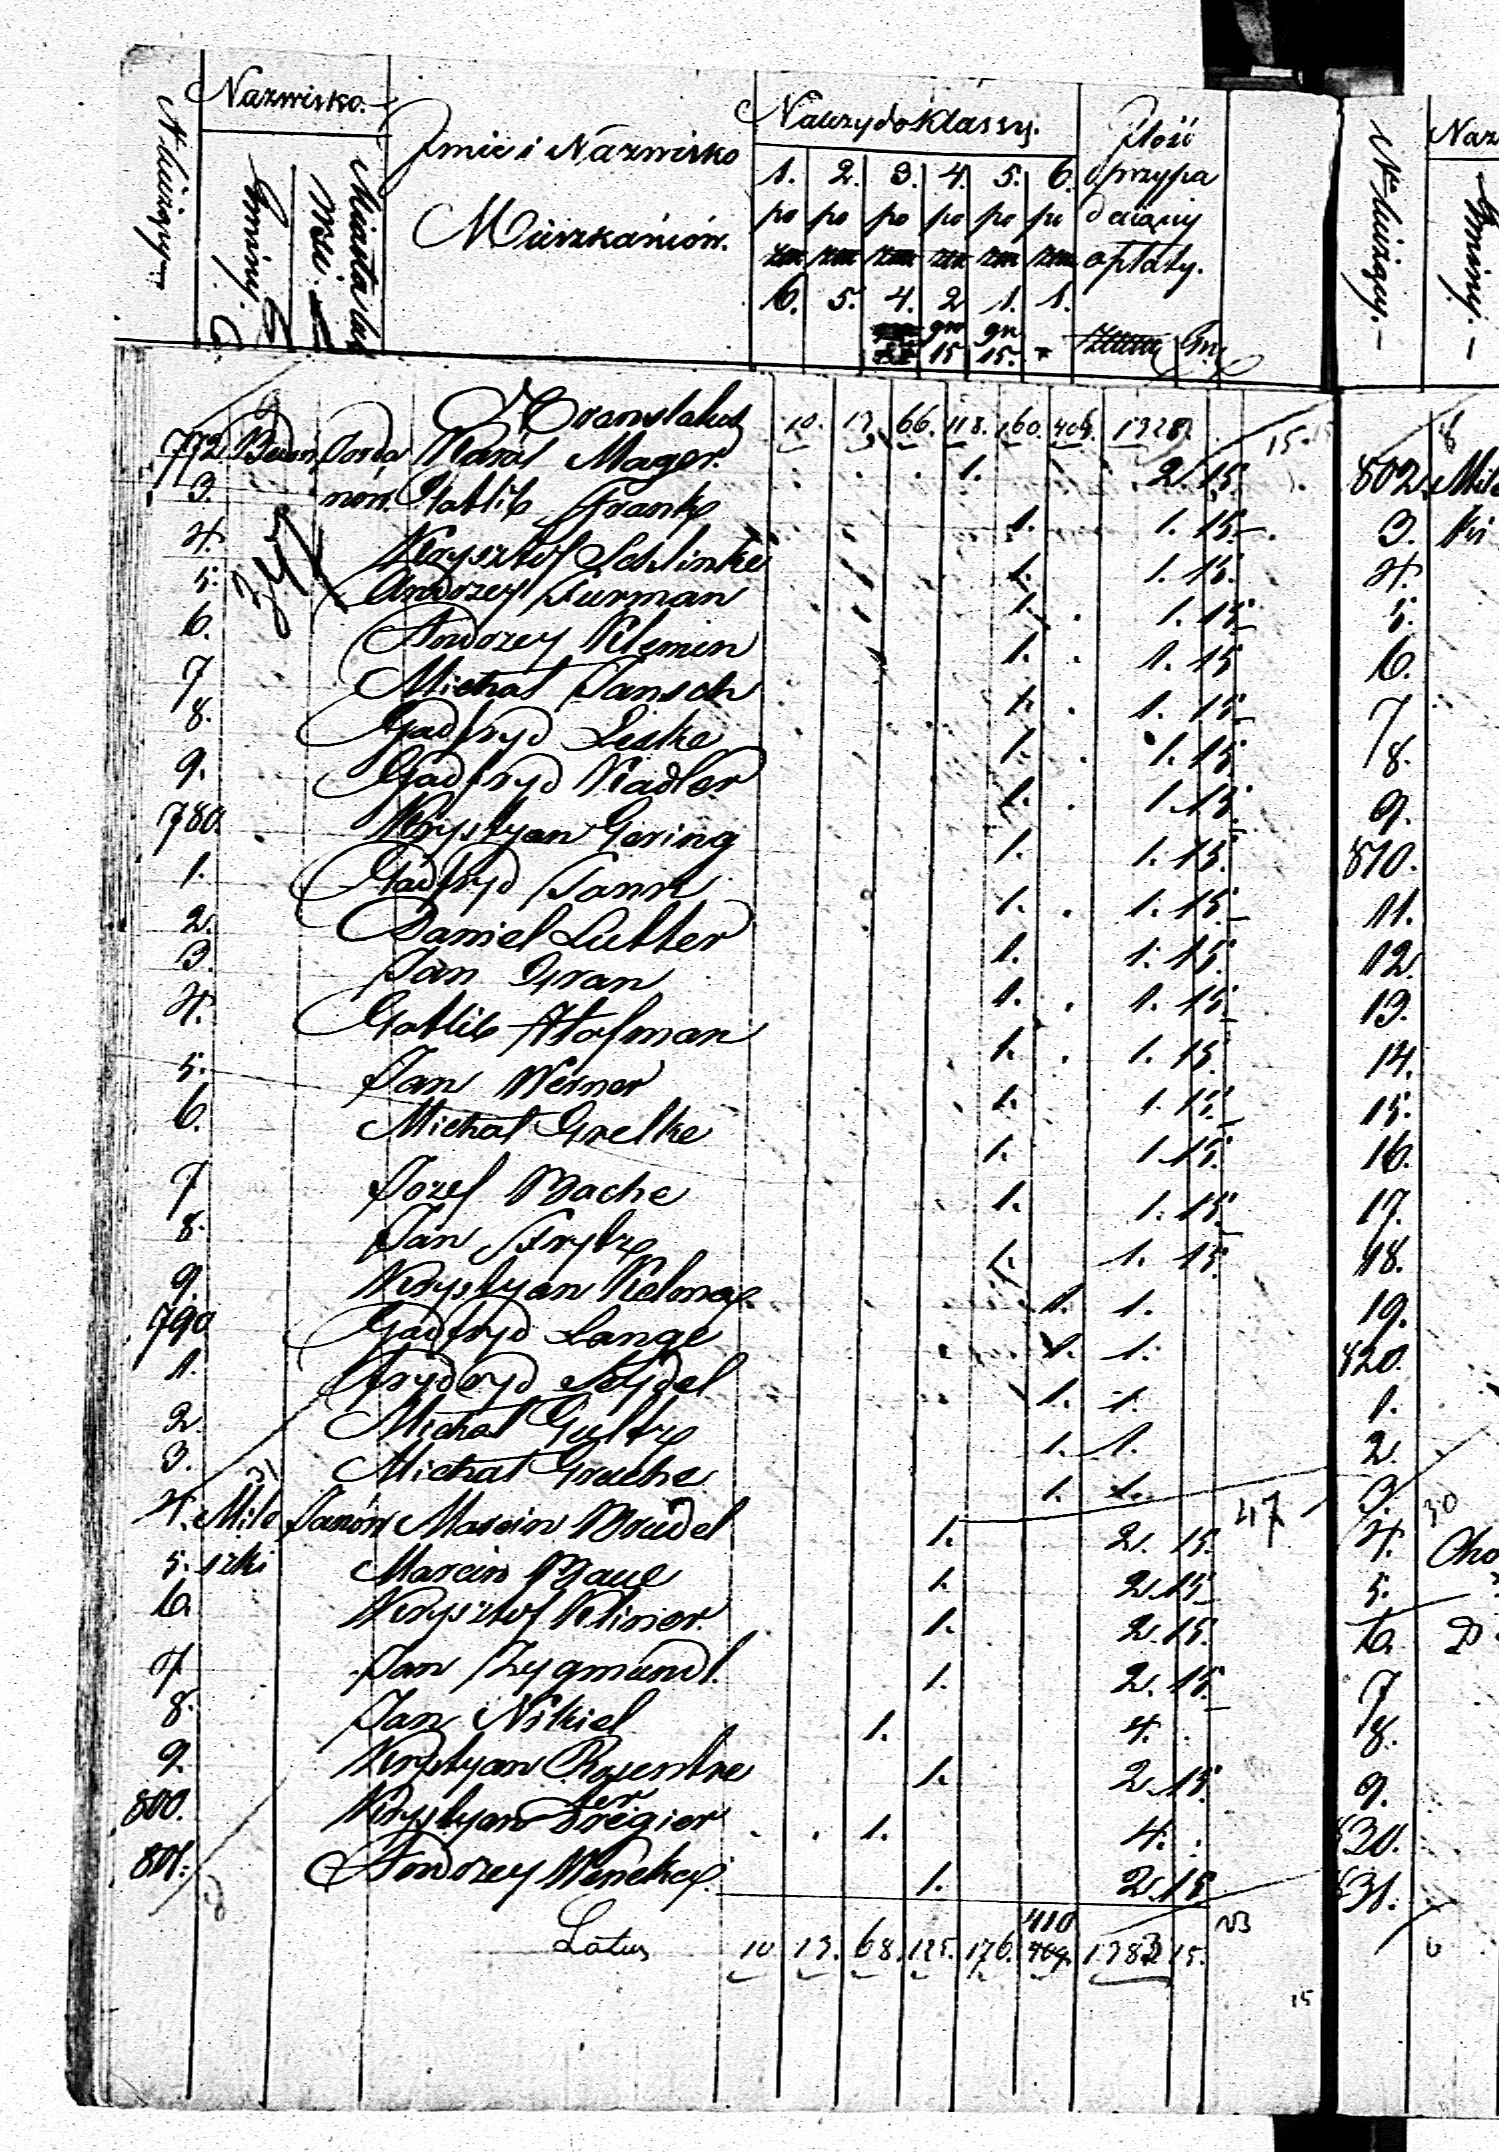 Nazwisko.
N. bieżący
Gminy.
Miasta lub
Wsi.
Imie i Nazwisko
Mieszkańców.
Należy do Klassy.
1. 2. 3. 4. 5. 6.
po po po po po po
6. 5. 4. 2 1. 1.
gr gr
15 15.
Ilość
przypa
daiącej
opłaty.
Gr.
Translatus 10. 13. 66. 118. 160. 404. 1328
772. Jorda Karol Mager. 1. 2. 15.
3. nów. Gotlib Frank 1. 1. 15.
4. Krysztof Schlinke 1. 1. 15.
5. Andrzey Furman 1. 1. 15.
6. Andrzey Klemin 1. 1. 15
7 Michał Jansch 1. 1. 15.
8. Gadfryd Leske 1. 1. 15
9. Gadfryd Kadler 1. 1. 15.
780. Krystyan Gering 1. 1. 15.
1. Gadfryd 1. 1. 15.
2. Daniel Lutter 1. 1. 15.
3. Jan Gran 1. 1. 15.
4. Gotlib Hofman 1. 1. 15.
5. Jan Werner 1. 1. 15.
6. Michał Grelke 1. 1. 15.
7 Jozef Bache 1. 1. 15.
8. Jan Frytz 1. 1. 15.
9. Krystyan 1. 1.
790 Gadfryd Lange 1. 1.
1. Frydryd Seydel 1. 1.
2. Michał Gultz 1. 1.
3. Michał Grache 1. 1.
4. Mile Janów Marcin Brudel 1. 2. 15. 47
5. szki Marcin Baue 1. 2. 15
6. Krysztof Kliner. 1. 2. 15.
7 Jan Zygmundt. 1. 2. 15.
8. Jan Nikiel 1. 4.
9. Krystyan Rosentre 1. 2. 15
ter
800. Krystyan Dregier 1. 4.
801. Andrzey 1. 2. 15
Latus 10 13. 68. 125. 176. 410 1383 15.
15
N. bieżący.
Gminy.
802. Mile
3. szki
4.
5.
6.
7
8.
9.
810.
11.
12.
13.
14.
15.
16.
17.
18.
19.
820.
1.
2.
3.
4. Cho
5.
6. D
7
8.
9.
830.
831.